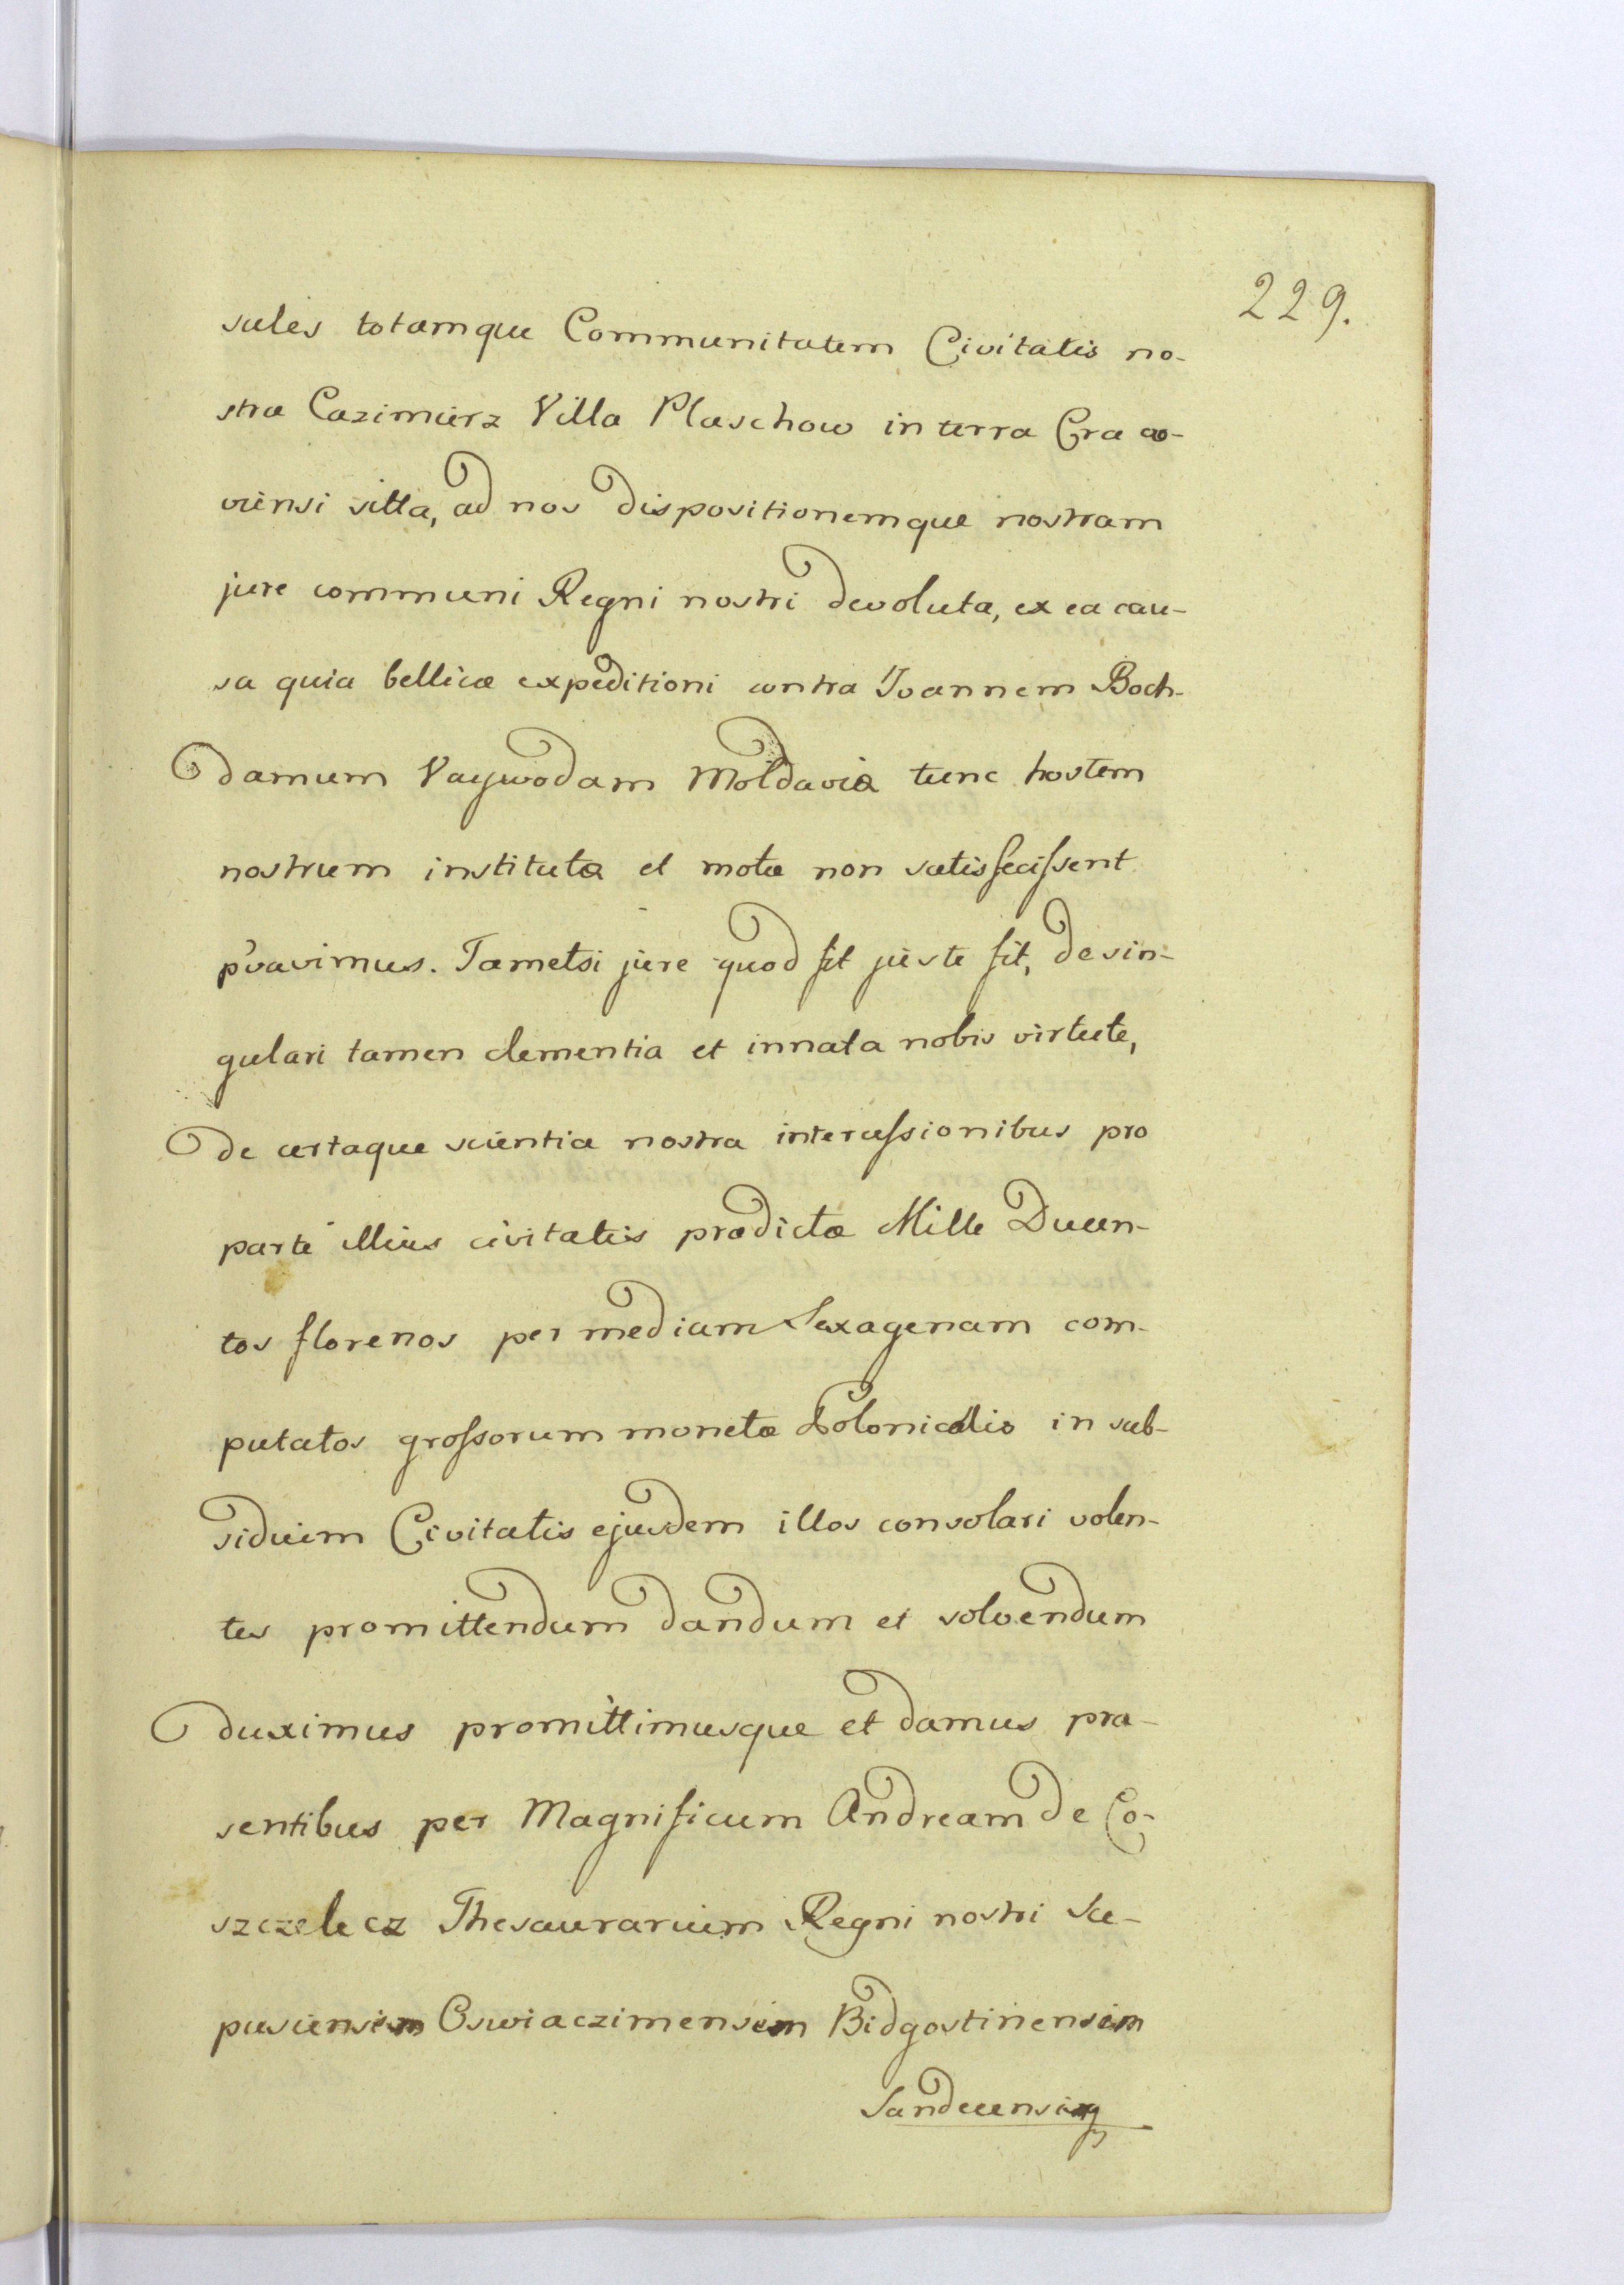 229.
sules totamque Communitatem Civitatis no-
stræ Cazimierz Villa Plaschow in terra Craco-
viensi sitta, ad nos dispositionemque nostram
jure communi Regni nostri devoluta, ex ea cau-
sa quia bellicæ expeditioni contra Joannem Boch-
damum Vaywodam Moldaviæ tunc hostem
nostrum institutæ et motæ non satisfecissent
p'vavimus. Tametsi jure quod fit juste fit, de sin-
gulari tamen clementia et innata nobis virtute,
de certaque scientia nostra intercessionibus pro
parte illius civitatis prædictæ Mille Ducen-
tos florenos per mediam Sexagenam com-
putatos grossorum monetæ Polonicalis in sub-
sidium Civitatis ejusdem illos consolari volen-
tes promittendum dandum et solvendum
duximus promittimusque et damus præ-
sentibus per Magnificum Andream de Co-
szczelecz Thesaurarium Regni nostri Sce-
pusiensem Oswiaczimensem Bidgostiensem
Sandecensem